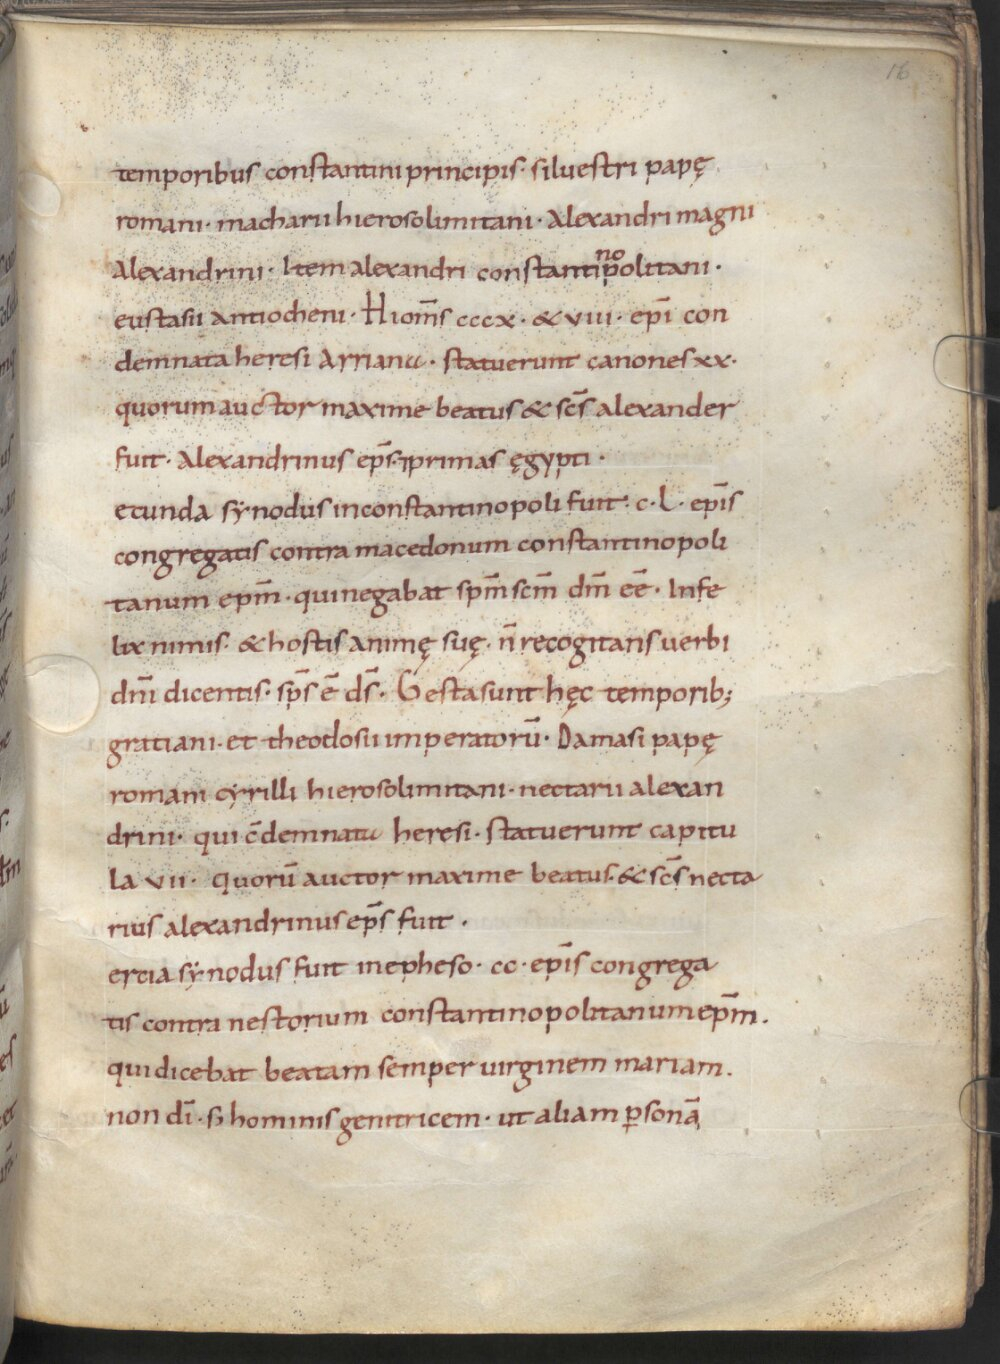 16
temporibus constantini principis· siluestri papę
romani· macharii hierosolimitani· Alexandri magni
Alexandrini· Item alexandri constanti\no/politani·
eustasii antiocheni· Hi om̅s cccx· & viii· epi̅ con
demnata heresi Arriana· statuerunt canones xx·
quorum auctor maxime beatus & sc̅s alexander
fuit· Alexandrinus ep̅s· ⁊ primas ęgypti·
ecunda synodus in constantinopoli fuit· c·L· epi̅s
congregatis contra macedonum constantinopoli
tanum epm̅· qui negabat spm̅ scm̅ dm̅ ee̅· Infe
lix nimis· & hostis animę suę· n̅ recogitans uerbi
dni̅ dicentis· sp̅s e̅ ds̅· Gesta sunt hęc temporib;
gratiani· et theodosii imperatoru̅· Damasi papę
romani cyrilli hierosolimitani· nectarii alexan
drini· qui c̅demnata heresi· statuerunt capitu
la vii· quoru̅ auctor maxime beatus· & sc̅s necta
rius alexandrinus ep̅s fuit·
ertia synodus fuit in epheso· cc· epi̅s congrega
tis contra nestorium constantinopolitanum epm̅.
qui dicebat beatam semper uirginem mariam.
non di̅· s; hominis genitricem· ut aliam ꝑsona̅